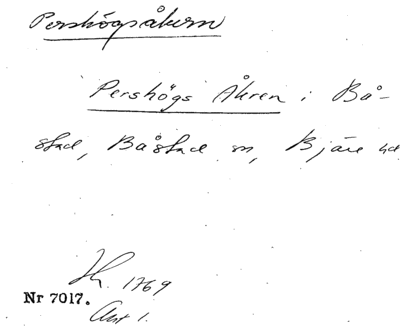 Pershögsåkern
Pershögs Åkren i Bå-
stad, Båstad sn, Bjäre hd
1769
Nr 7017.
Akt 1.